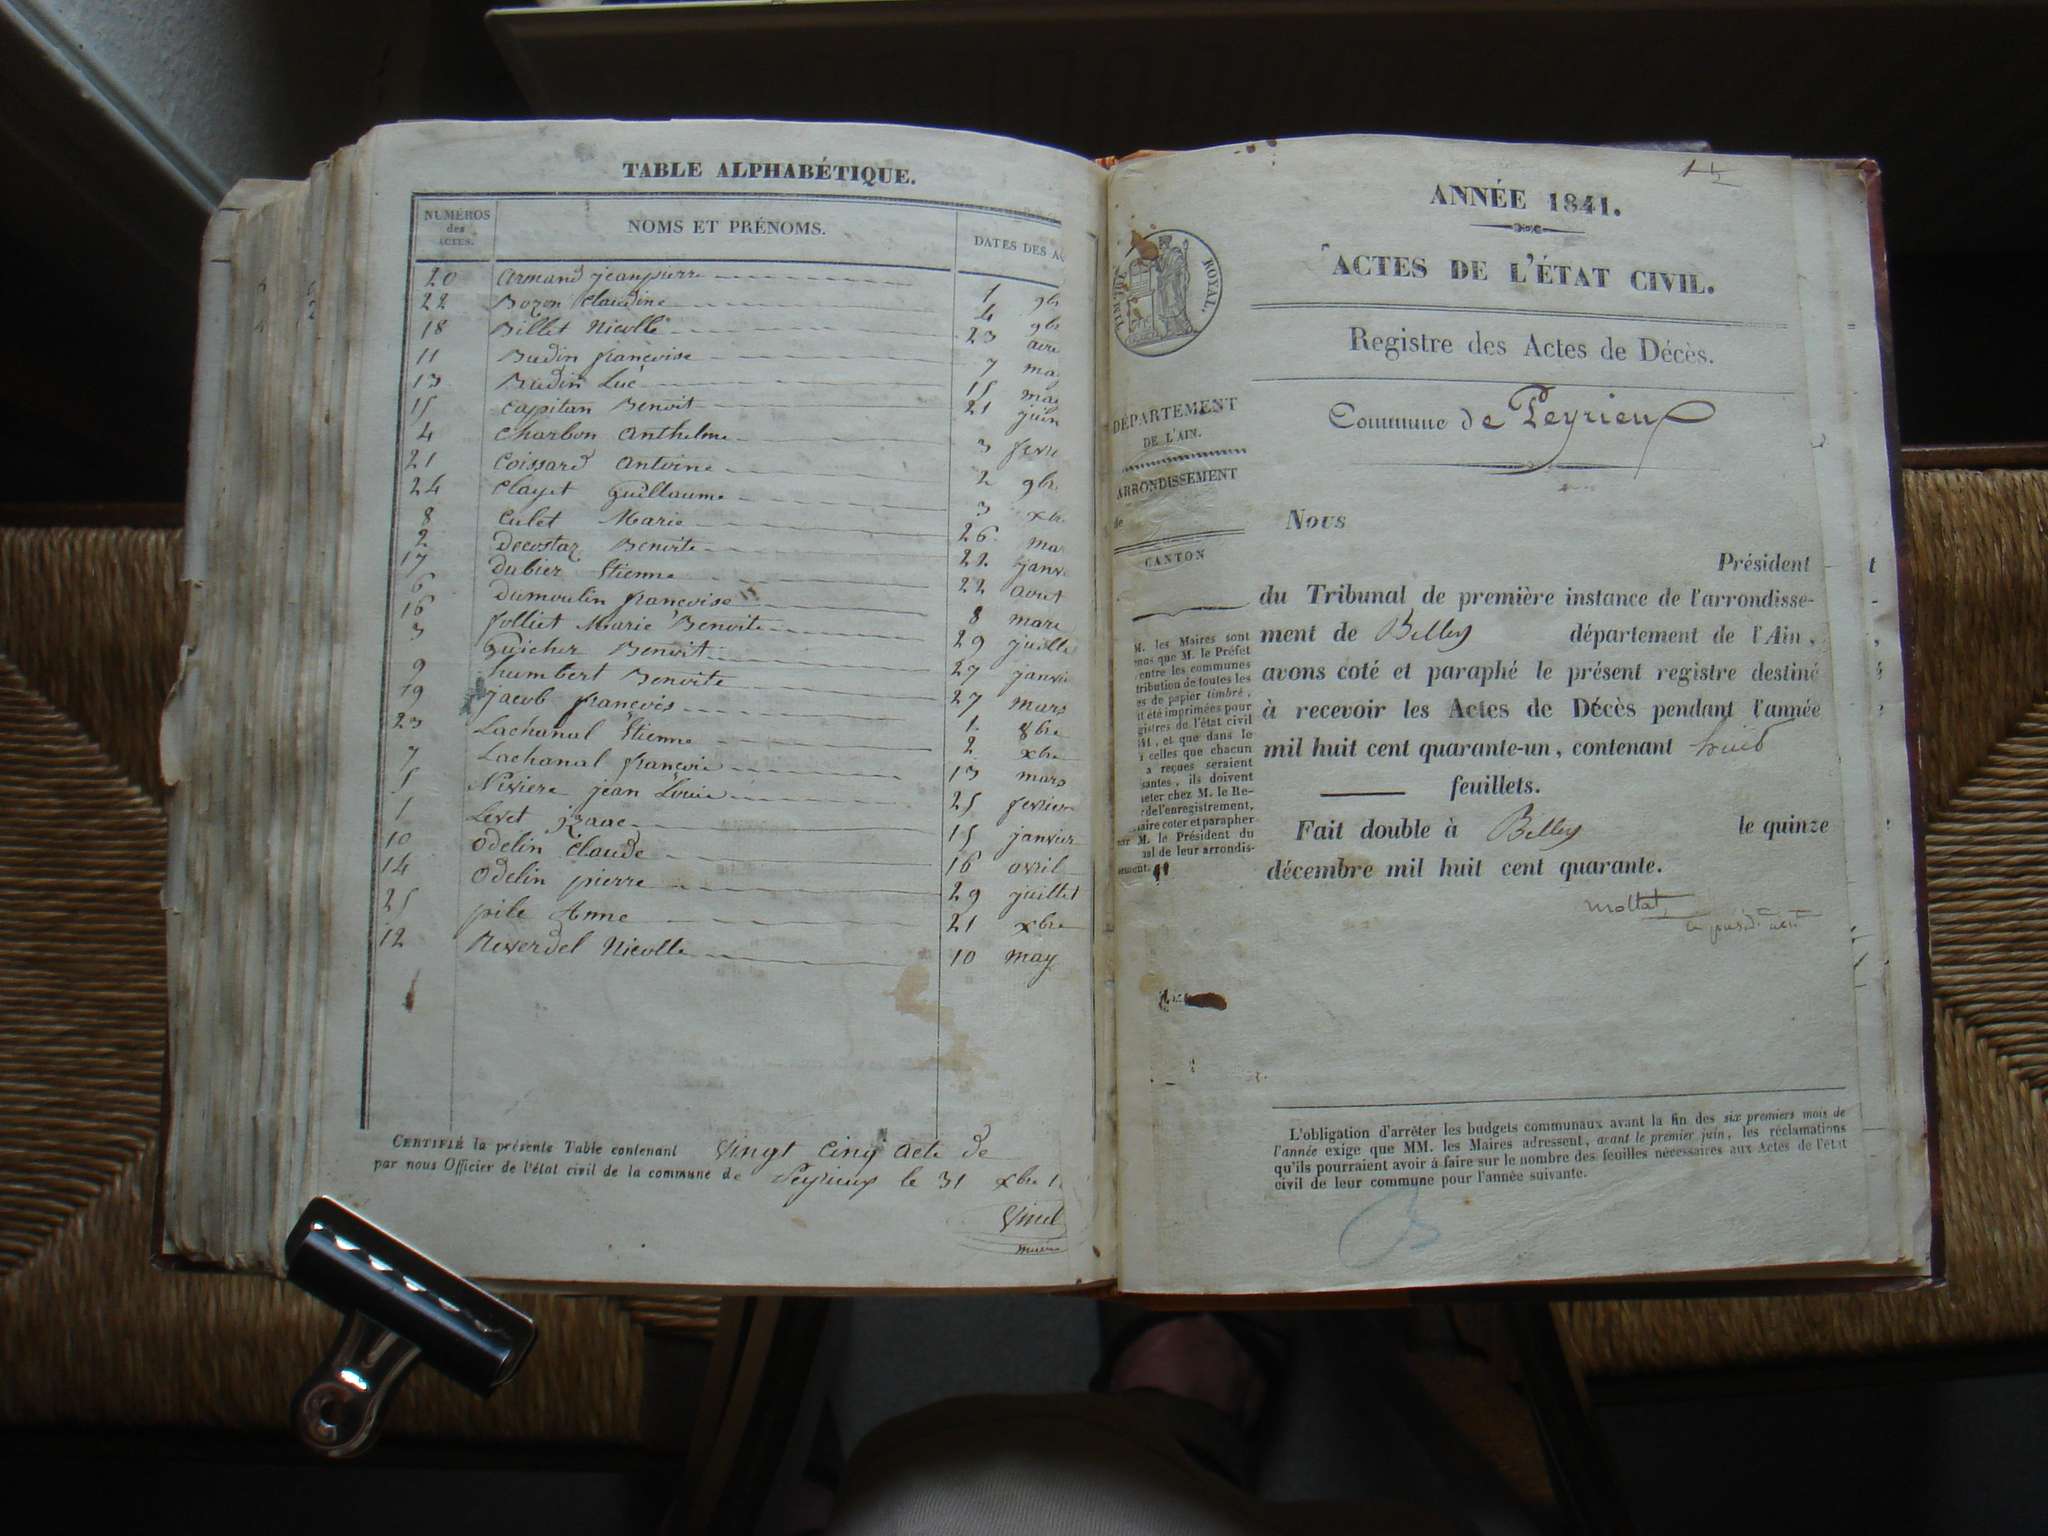 TABLE ALPHABÉTIQUE.
NUMÉROS des ACTES.
NOMS ET PRÉNOMS.
DATES DES AC
20 Armand jeanpierre 1 9br
22 Bozon Claudine 4 9br
18 Billet Nicolle 23 aou
11 Budin françoise 7 ma
13 Budin Luc 15 mai
15 Capitan Benoit 21 juin
4 Charbon Anthelme 3 fevri
21 Coissard Antoine 2 9br
24 Clayet Guillaume 3 xbr
8 Culet Marie 26 mar
2 Decostaz Benoite 22 janv
17 Dubiez Etienne 22 aout
6 Dumoulin françoise 8 mars
16 folliet Marie Benoite 29 juille
3 Guicher Benoit 27 janvie
9 humbert Benoite 27 mars
19 jacob françois 1 8bre
23 Lachanal Etienne 2 xbre
7 Lachanal françois 13 mars
5 jean Louis 25 fevrier
1 Levet 15 janvier
10 Odelin Claude 16 avril
14 Odelin pierre 29 juillet
25 pile Anne 21 xbre
12 Reverdel Nicolle 10 may
CERTIFIÉ la présente Table contenant Vingt Cinq acte de
par nous Officier de l'état civil de la commune de Peyrieux le 31 xbre 1
maire
ANNÉE 1841.
ACTES DE L'ÉTAT CIVIL.
Registre des Actes de Décès.
Commune de Peyrieux
ROYAL.
DÉPARTEMENT
DE L'AIN.
ARRONDISSEMENT
de
CANTON
M. les Maires sont
que M. le Préfet
entre les communes
tribution de toutes les
es de papier timbré,
t été imprimées pour
gistres de l'état civil
, et que dans le
celles que chacun
a reçues seraient
santes, ils doivent
eter chez M. le Re-
de l'enregistrement,
aire coter et parapher
M. le Président du
al de leur arrondis-
sement.
Nous
Président
du Tribunal de première instance de l'arrondisse-
ment de Belley département de l'Ain,
avons coté et paraphé le présent registre destiné
à recevoir les Actes de Décès pendant l'année
mil huit cent quarante-un, contenant huit
feuillets.
Fait double à Belley le quinze
décembre mil huit cent quarante.
mottat
L'obligation d'arrêter les budgets communaux avant la fin des six premiers mois de
l'année exige que MM. les Maires adressent, avant le premier juin, les réclamations
qu'ils pourraient avoir à faire sur le nombre des feuilles nécessaires aux Actes de l'état
civil de leur commune pour l'année suivante.